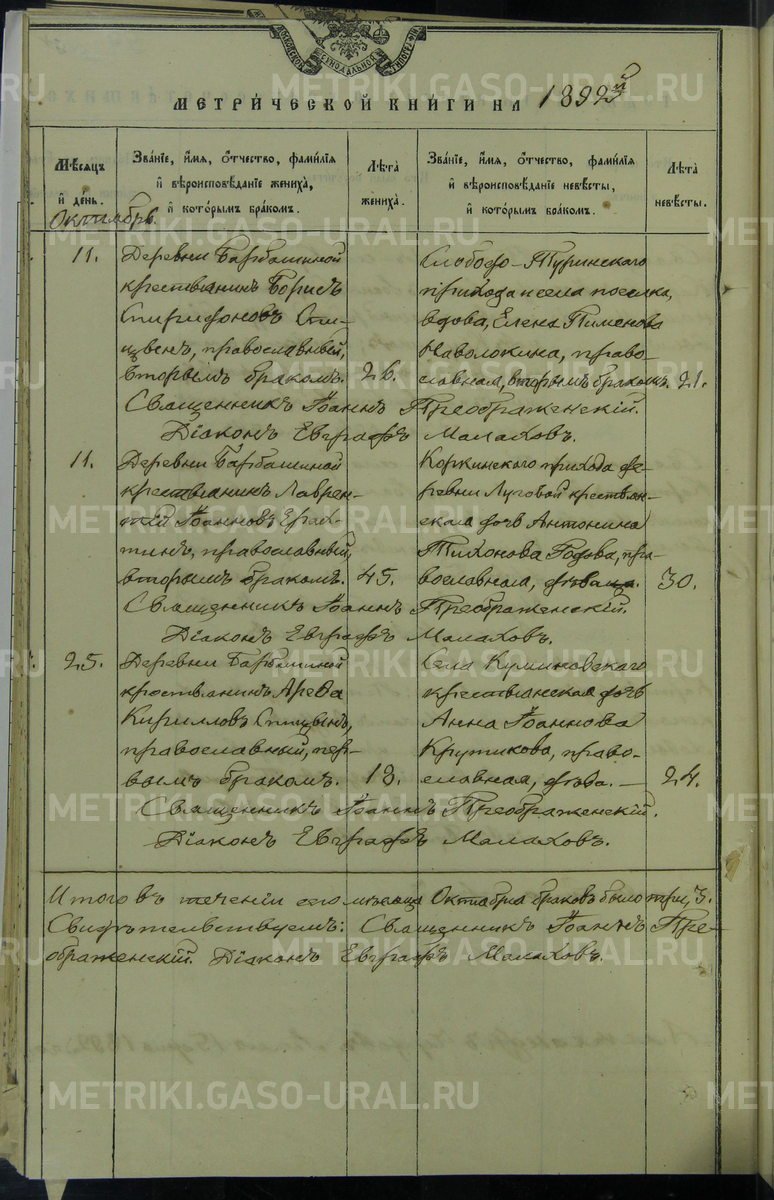 МОСКОВСКОЙ СѴНОДАЛЬНОЙ ТИПОГРАФІИ
МЕТРИ́ЧЕСКОЙ КНИ́ГИ НА 1892й
Мѣсяцъ и день.
Зва́ніе, и́мя, о́тчество, фами́лія и вѣроисповѣ́даніе жениха̀, и кото́рымъ бра́комъ.
Лѣта̀ жениха̀.
Зва́ніе, и́мя, о́тчество, фами́лія и вѣроисповѣ́даніе невѣ́сты, и кото́рымъ бра́комъ.
Лѣта̀ невѣ́сты.
Октябрь.
11. Деревни Барбашиной
крестьянинъ Борисъ
Спиридоновъ Спи-
цынъ, православный,
вторымъ бракомъ. 26.
Слободо-Туринскаго
прихода и села поселка,
вдова, Елена Пименова
Наволокина, право-
славная, вторымъ бракомъ. 21.
Священникъ Іоаннъ Преображенскій.
Діаконъ Евграфъ Малаховъ.
11. Деревни Барбашиной
крестьянинъ Лаврен-
тій Іоанновъ
православный,
вторымъ бракомъ. 45.
Коржинскаго прихода де-
ревни Луговой крестьян-
ская дочь Антонина
Тихонова пра-
вославная, дѣвица. 30.
Священникъ Іоаннъ Преображенскій.
Діаконъ Евграфъ Малаховъ.
25. Деревни Барбашиной
крестьянинъ Арефа
Кирилловъ Спицынъ,
православный, пер-
вымъ бракомъ. 18.
Села Куминовскаго
крестьянская дочь
Анна Іоаннова
Крутикова, право-
славная, дѣва. — 24.
Священникъ Іоаннъ Преображенскій.
Діаконъ Евграфъ Малаховъ.
Итого въ теченіи сего мѣсяца Октября браковъ было три, 3.
Свидѣтельствуемъ: Священникъ Іоаннъ Пре-
ображенскій. Діаконъ Евграфъ Малаховъ.
METRIKI.GASO-URAL.RU